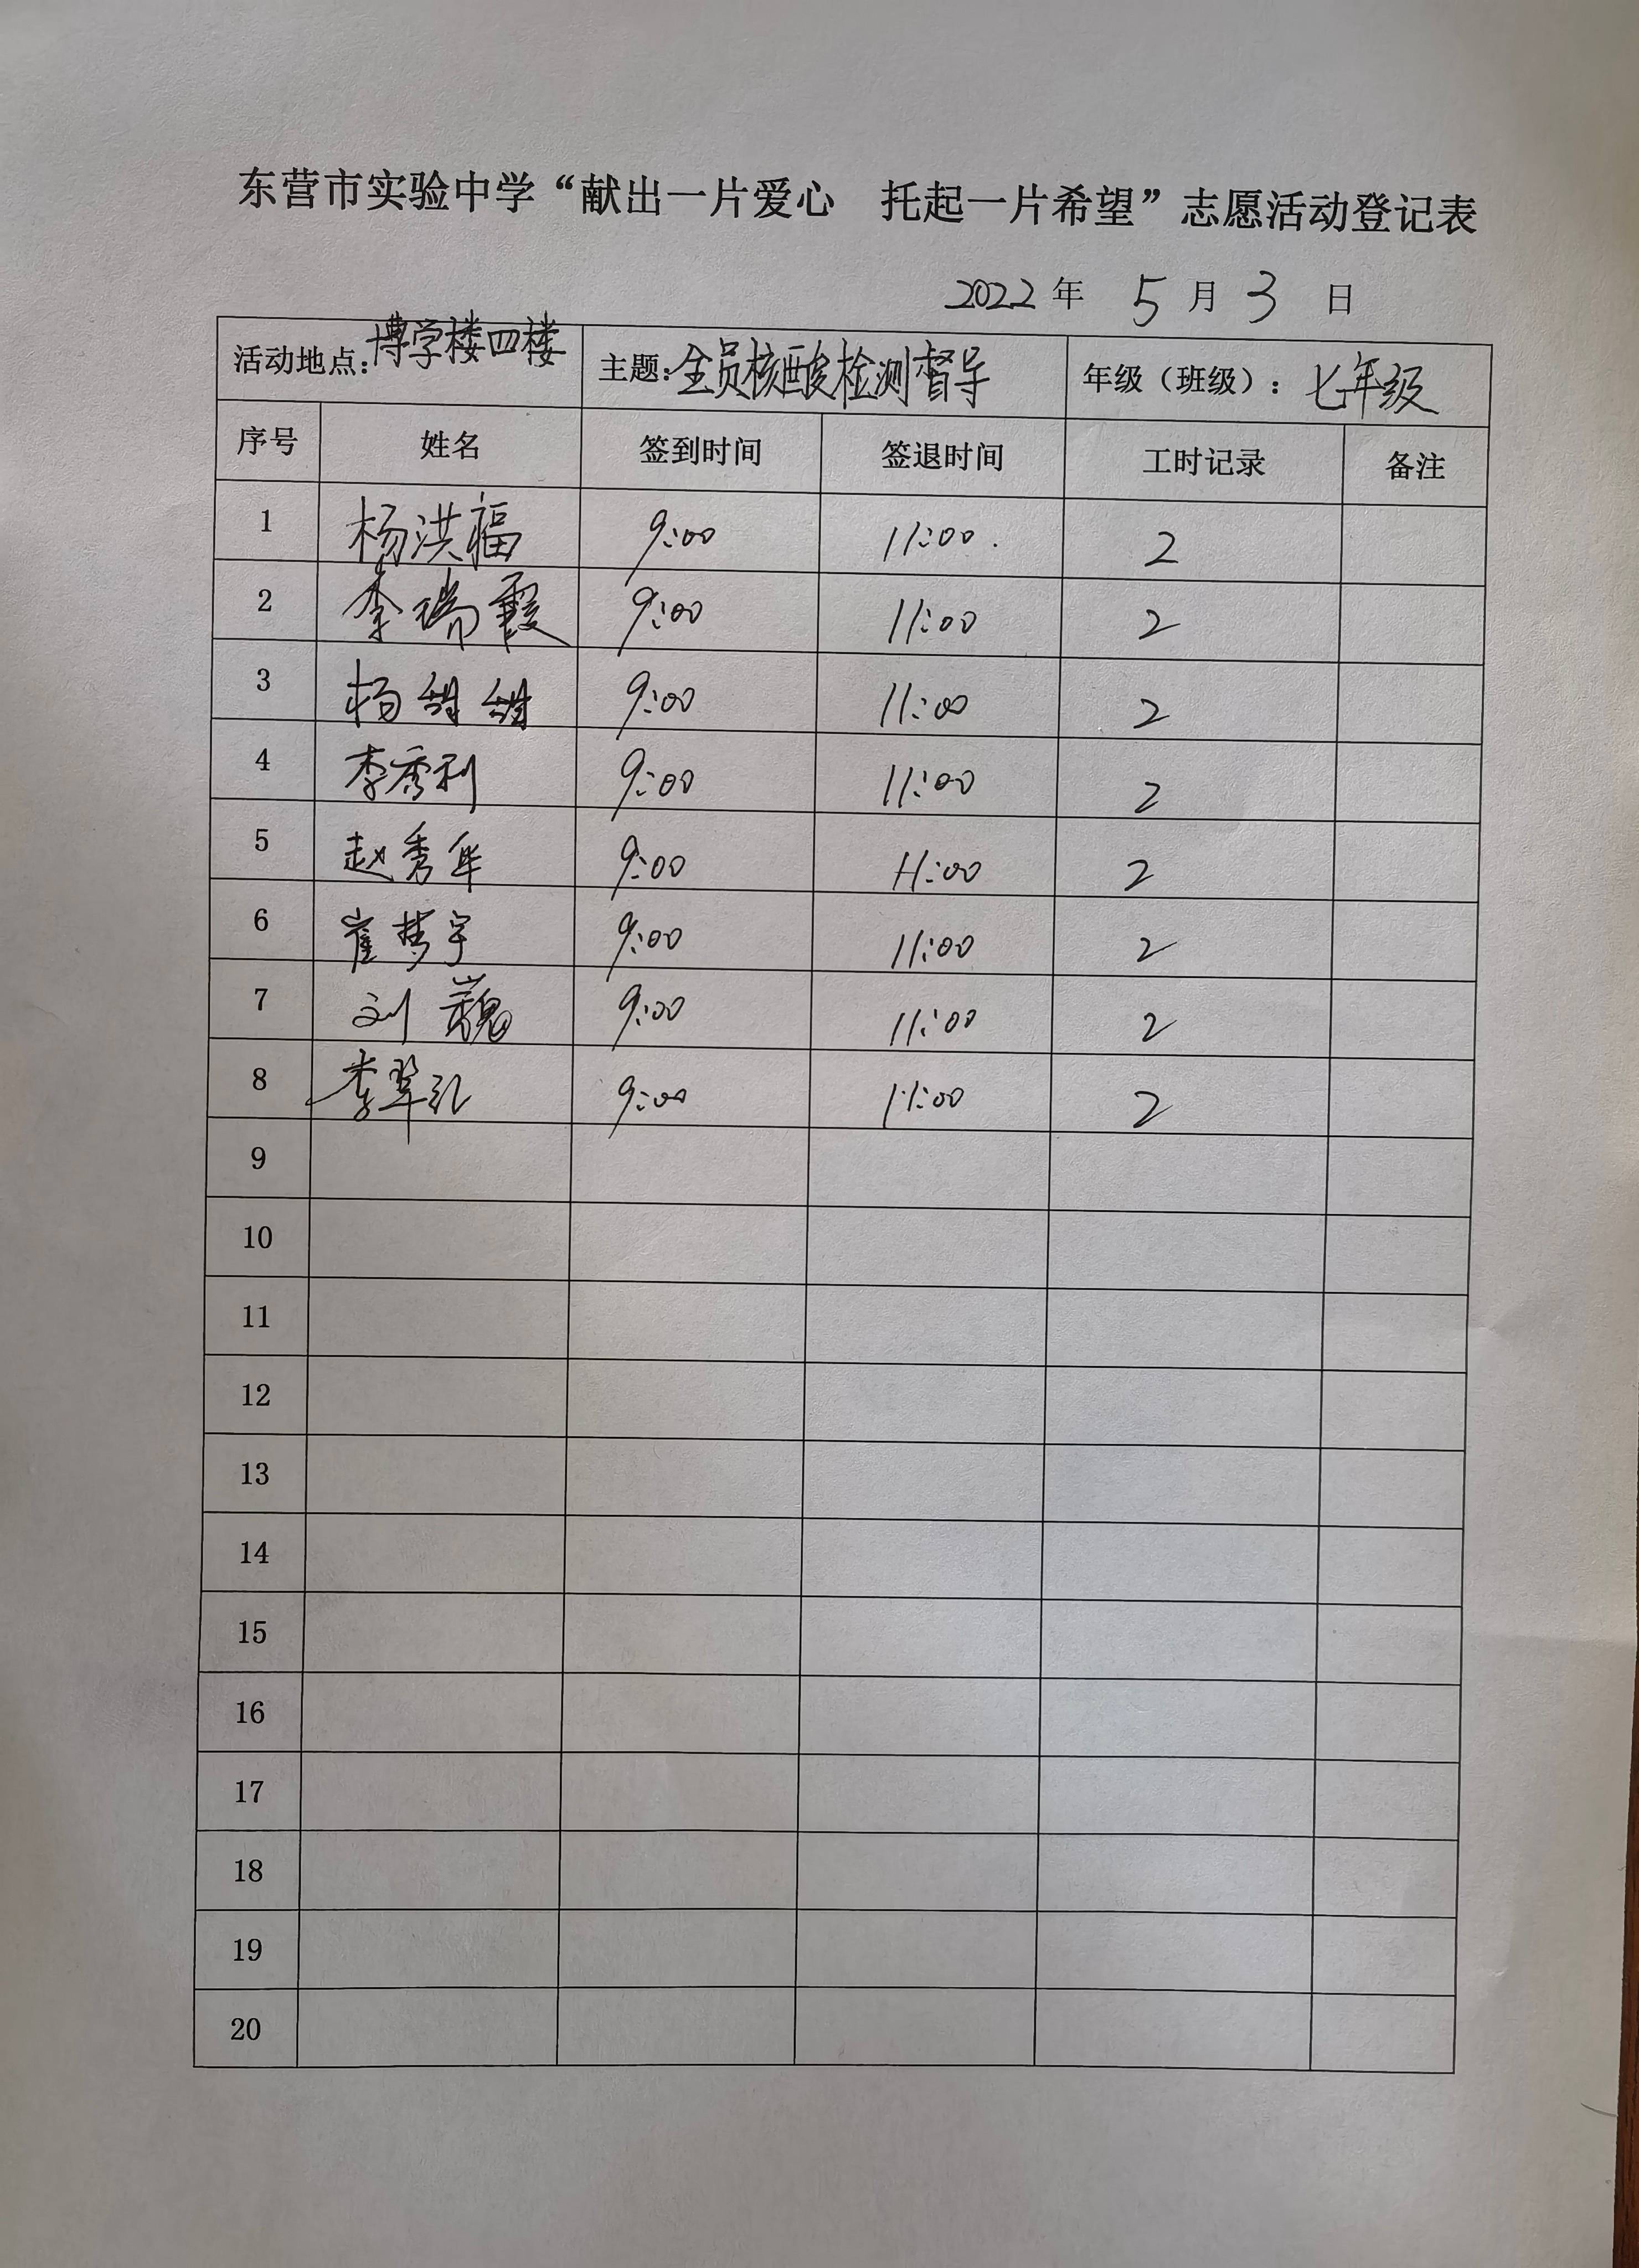 东营市实验中学“献出一片爱心 托起一片希望”志愿活动登记表
2022年 5月3日
活动地点：博学楼四楼 主题：全员核酸检测督导 年级（班级）：七年级
序号 姓名 签到时间 签退时间 工时记录 备注
1 杨洪福 9:00 11:00. 2
2 李瑞霞 9:00 11:00 2
3 杨甜甜 9:00 11:00 2
4 李秀利 9:00 11:00 2
5 赵秀华 9:00 11:00 2
6 崔梦宇 9:00 11:00 2
7 刘巍 9:00 11:00 2
8 李翠红 9:00 11:00 2
9
10
11
12
13
14
15
16
17
18
19
20